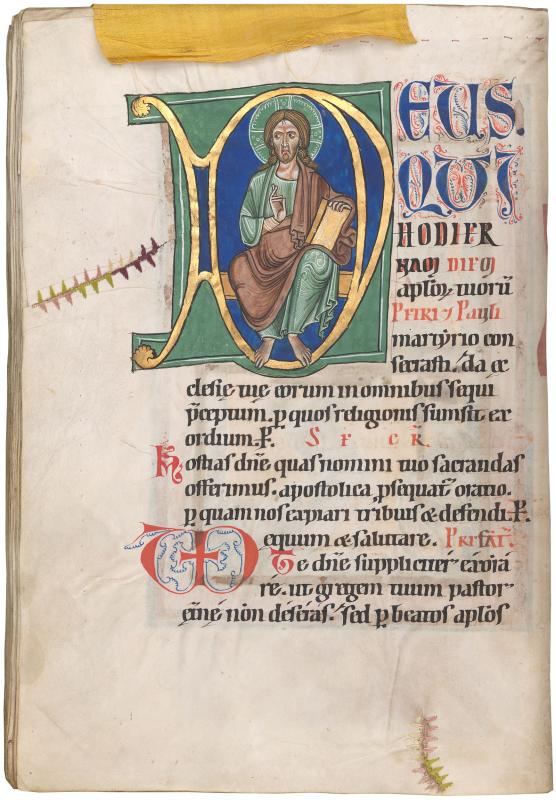 DEUS.
QUI
HODIER
NAM DIEM
aplōꝝ tuorū
PETRI ⁊ Pauli
martyrio con
secrasti. da ec
clesię tuę eorum in omnibus sequi
p̄ceptum. p quos religionis sumsit ex
ordium. P. S E C R̄.
Hostias dn̄e quas nomini tuo sacrandas
offerimus. apostolica ꝓsequat᷑ oratio.
p quam nos expiari tribuis & defendi. P.
equum & salutare. PREFAT̄.
Te dn̄e suppliciter exorā
re. ut gregem tuum pastor
ęt̄nę non deseras. sed p beatos aplōs